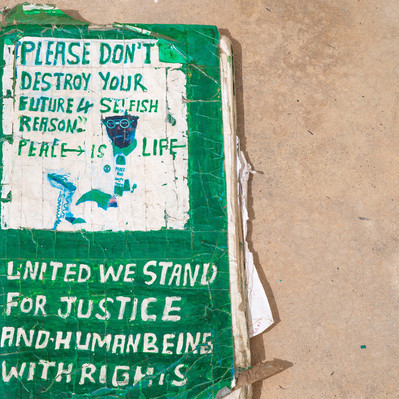 PLEASE DON'T
DESTROY YOUR
FUTURE 4 SELFISH
REASON.
PEACE → IS LIFE
UNITED WE STAND
FOR JUSTICE
AND·HUMAN BEING
WITH RIGHTS